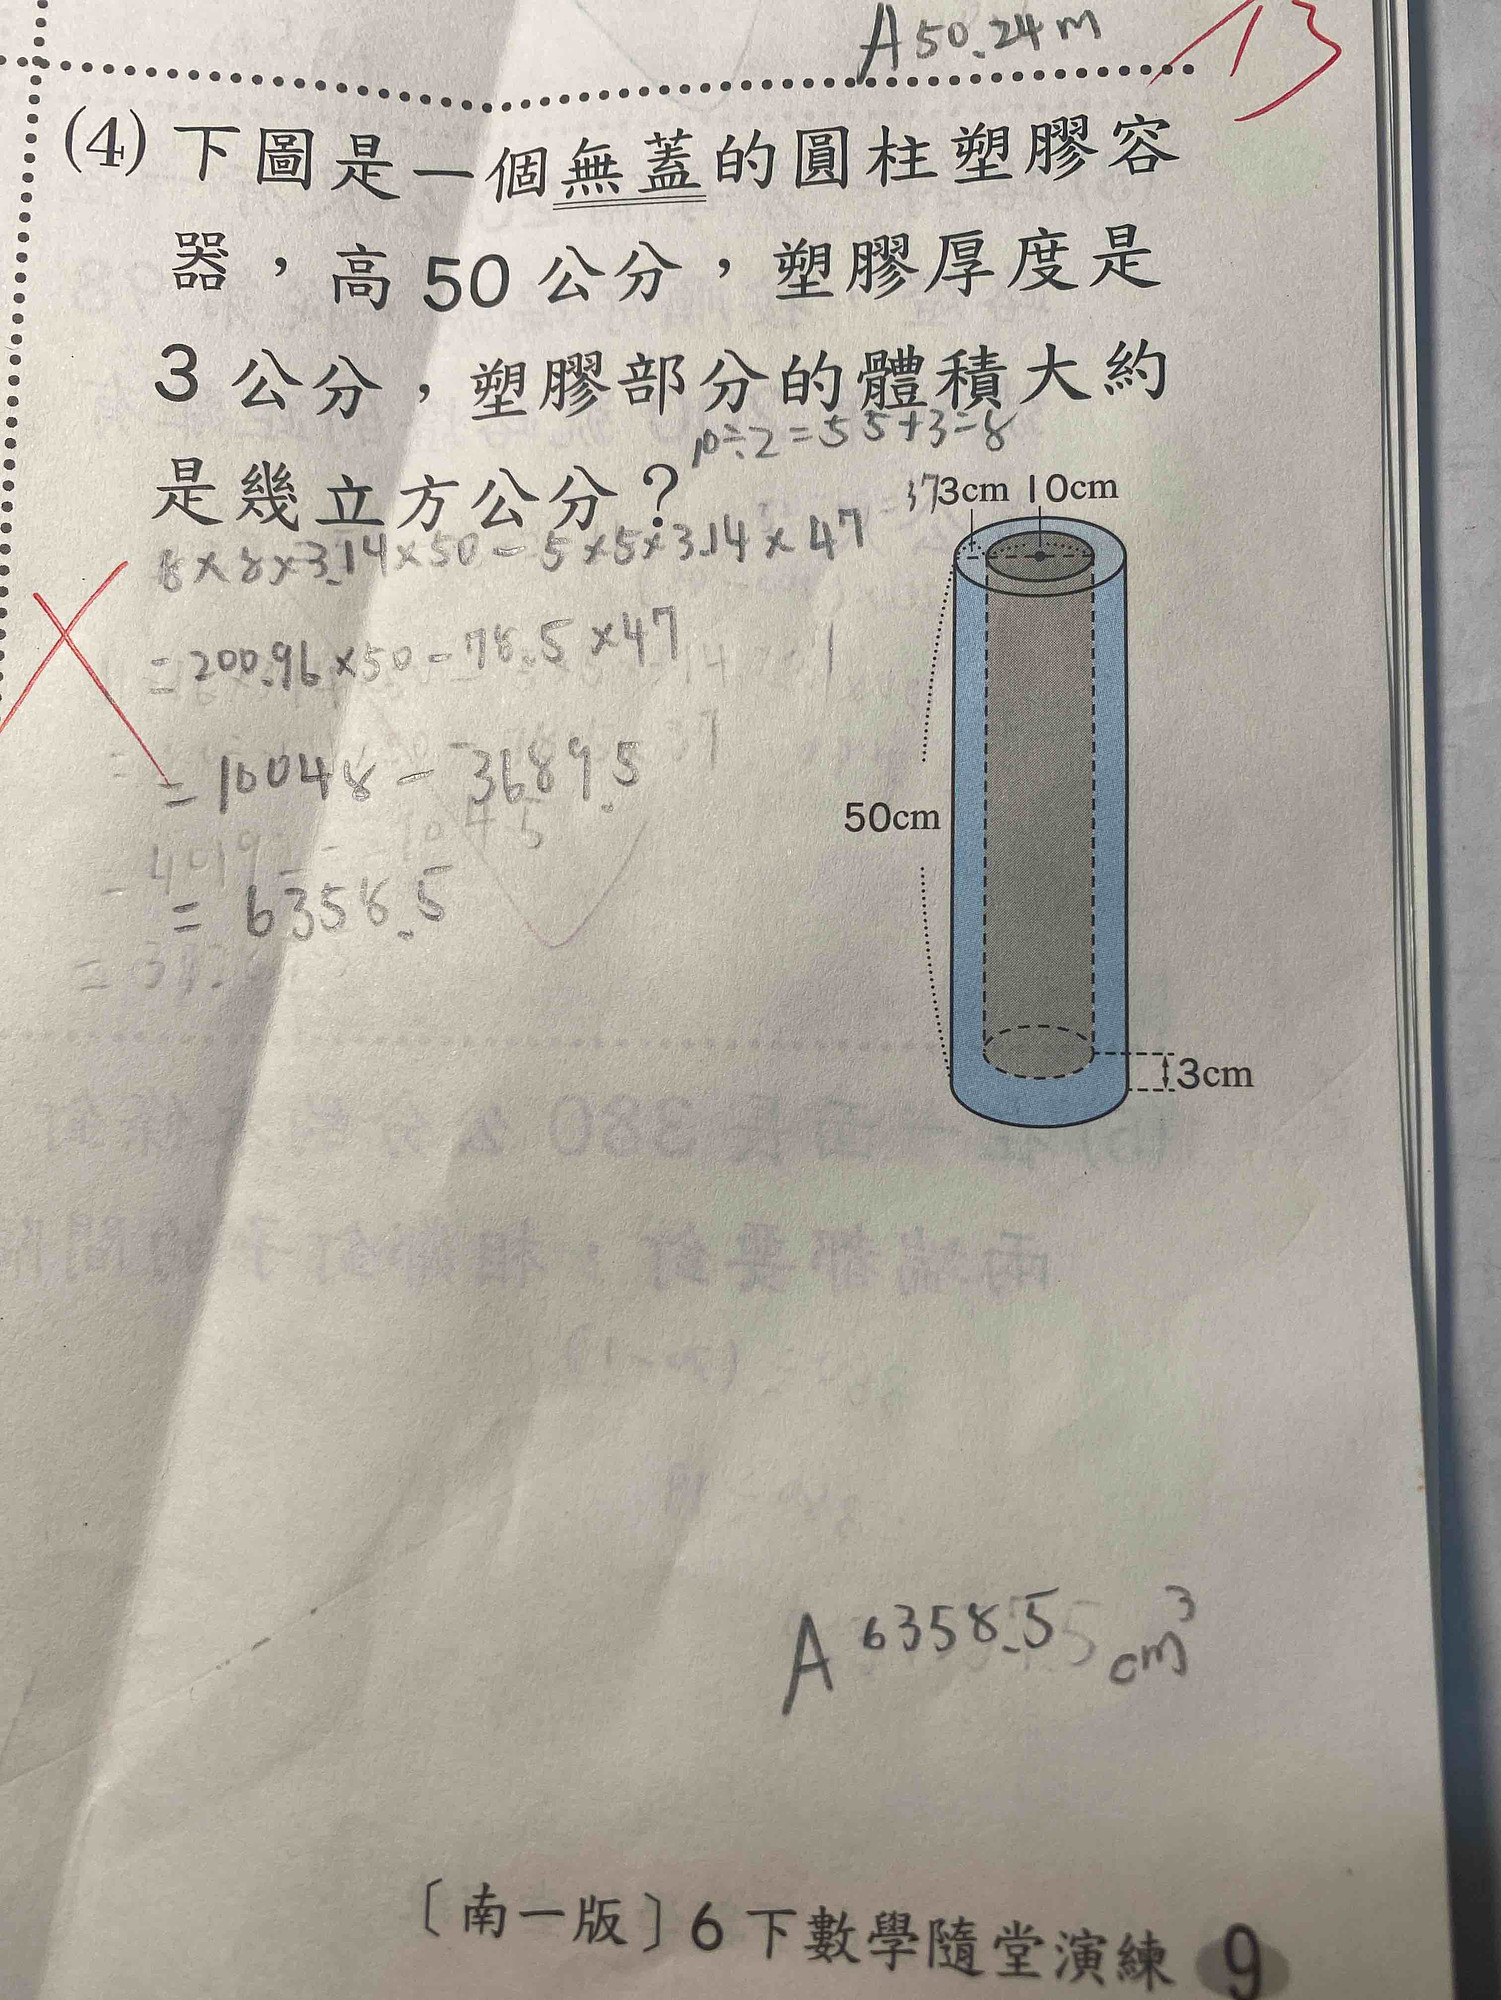 A 50.24m
13
(4) 下圖是一個無蓋的圓柱塑膠容
器，高 50 公分，塑膠厚度是
3 公分，塑膠部分的體積大約
是幾立方公分？
10÷2=5 5+3=8
3cm 10cm
8×8×3.14×50-5×5×3.14×47
=200.96×50-78.5×47
=10048-3689.5
=6358.5
50cm
3cm
A 6358.5 cm³
〔南一版〕6 下數學隨堂演練 9